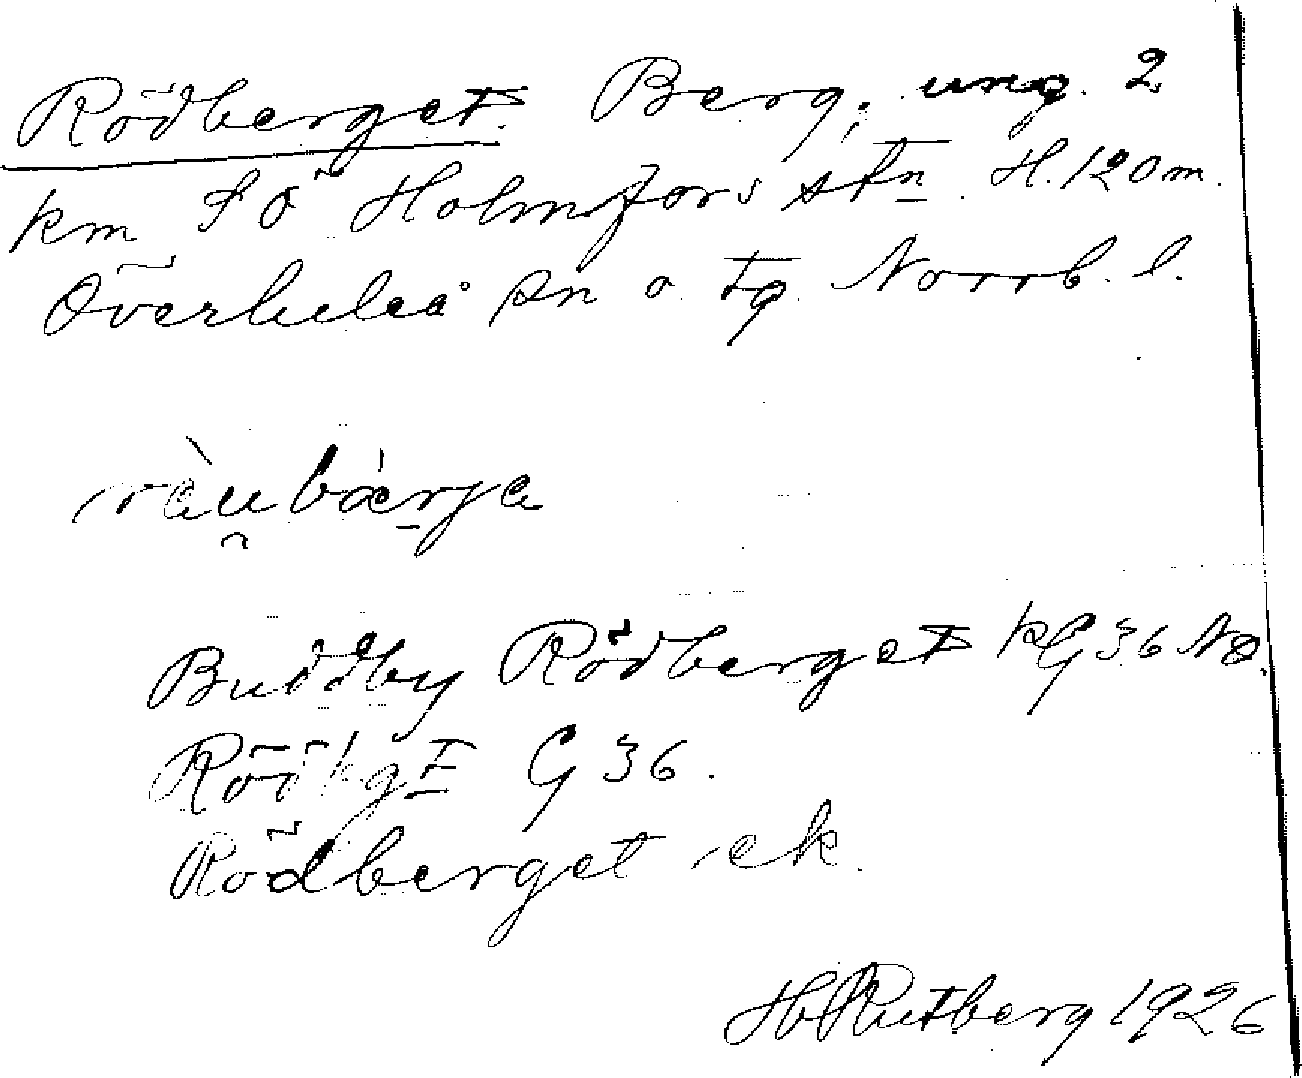 Rödberget. Berg, ung. 2
km SÖ Holmfors stn. H. 120 m.
Överluleå sn o. tg. Norrb. l.
ràu̯bàrja
Buddby Rödberget kG 36 NO.
Rödbgt G 36.
Rödberget ek.
H Rutberg 1926